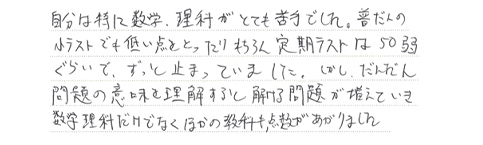 自分は特に数学、理科がとても苦手でした。普だんの
小テストでも低い点をとったりもちろん定期テストは50弱
ぐらいで、ずっと止まっていました。しかし、だんだん
問題の意味を理解すると解ける問題が増えていき
数学理科だけでなくほかの教科も点数があがりました